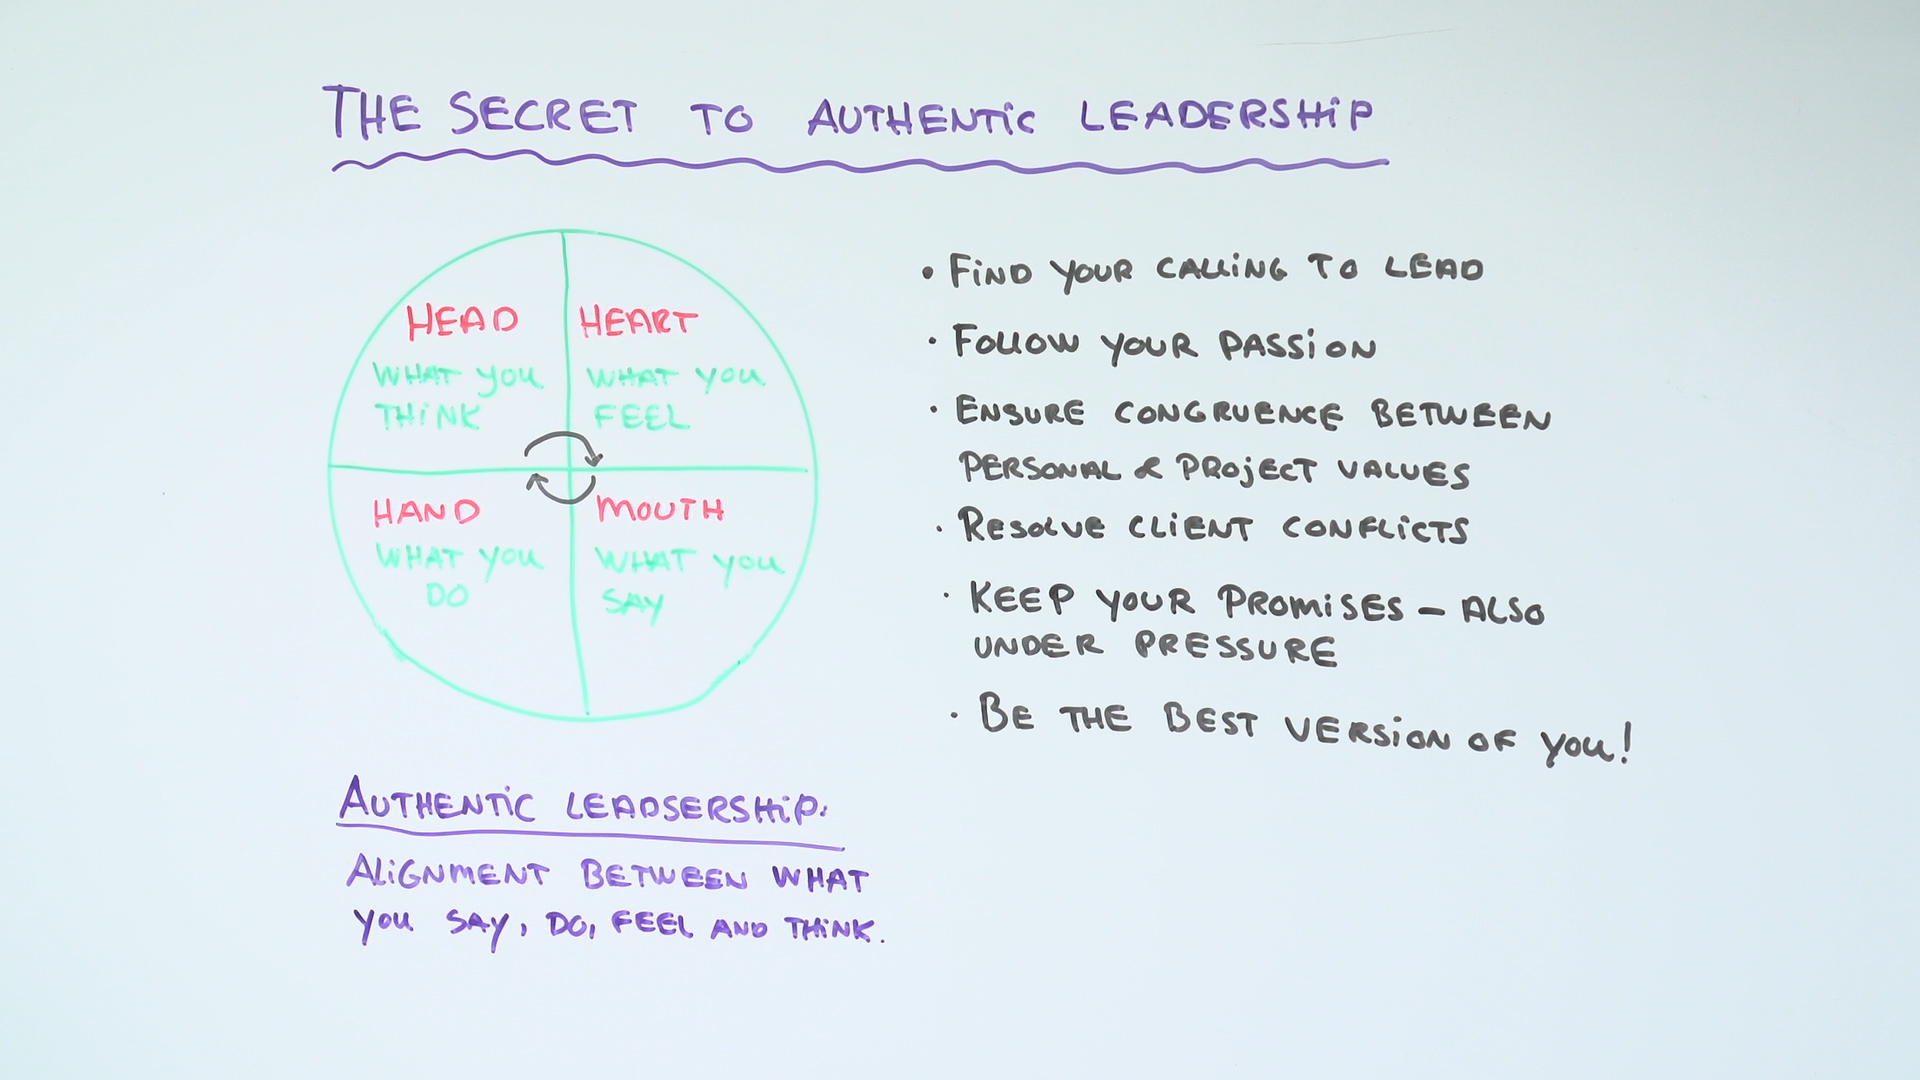 THE SECRET TO AUTHENTIC LEADERSHIP
HEAD
WHAT YOU
THINK
HEART
WHAT YOU
FEEL
HAND
WHAT YOU
DO
MOUTH
WHAT YOU
SAY
AUTHENTIC LEADSERSHIP:
ALIGNMENT BETWEEN WHAT
YOU SAY, DO, FEEL AND THINK.
• FIND YOUR CALLING TO LEAD
• FOLLOW YOUR PASSION
• ENSURE CONGRUENCE BETWEEN
PERSONAL & PROJECT VALUES
• RESOLVE CLIENT CONFLICTS
• KEEP YOUR PROMISES – ALSO
UNDER PRESSURE
• BE THE BEST VERSION OF YOU!